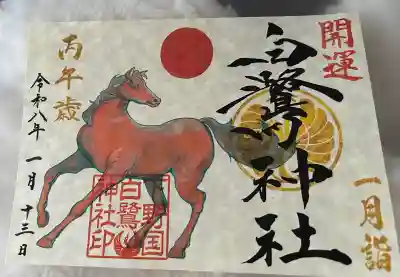 開運
白鷺神社
一月詣
丙午歳
令和八年 一月 十三日
下野国
白鷺
神社印